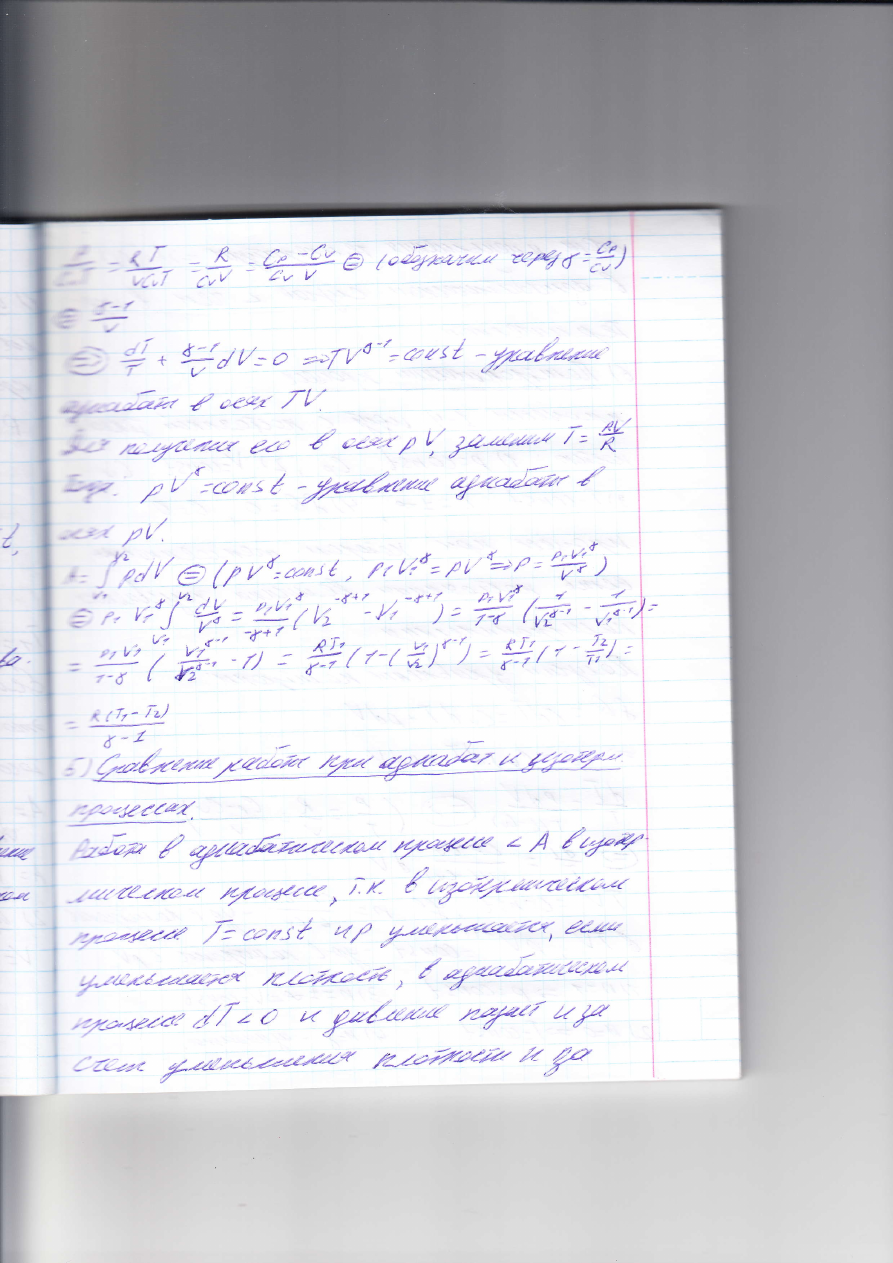 t,
ва.
P/(CvT) = RT/(VCvT) = R/(CvV) = (Cp − Cv)/(Cv V) ⊜ (обозначим через γ = Cp/Cv)
⊜ (γ−1)/V
⊜ dT/T + (γ−1)/V dV = 0 ⇒ TV^(γ−1) = const – уравнение
адиабаты в осях TV.
Для получения его в осях pV, заменим T = pV/R
Тогда: pV^γ = const – уравнение адиабаты в
осях pV.
A = ∫_{V1}^{V2} pdV ⊜ (pV^γ = const, p1V1^γ = pV^γ ⇒ P = p1V1^γ/V^γ)
⊜ p1 V1^γ ∫_{V1}^{V2} dV/V^γ = p1V1^γ/(−γ+1) (V2^(−γ+1) − V1^(−γ+1)) = p1V1^γ/(1−γ) (1/V2^(γ−1) − 1/V1^(γ−1)) =
= p1V1/(1−γ) (V1^(γ−1)/V2^(γ−1) − 1) = RT1/(γ−1) (1 − (V1/V2)^(γ−1)) = RT1/(γ−1) (1 − T2/T1) =
= R(T1−T2)/(γ−1)
5) Сравнение работы при адиабат и изотерм.
процессах.
Работа в адиабатическом процессе < A в изотер-
мическом процессе, т.к. в изотермическом
процессе T = const и p уменьшается, если
уменьшается плотность, в адиабатическом
процессе dT < 0 и давление падает и за
счет уменьшения плотности и за